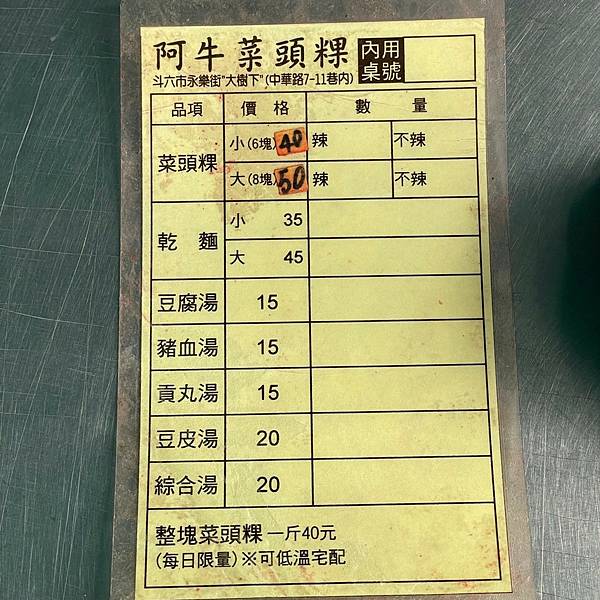 阿牛菜頭粿 內用桌號
斗六市永樂街"大樹下"(中華路7-11巷內)
品項 價格 數量
菜頭粿 小(6塊) 40 辣 不辣
大(8塊) 50 辣 不辣
乾麵 小 35
大 45
豆腐湯 15
豬血湯 15
貢丸湯 15
豆皮湯 20
綜合湯 20
整塊菜頭粿 一斤40元
(每日限量)※可低溫宅配